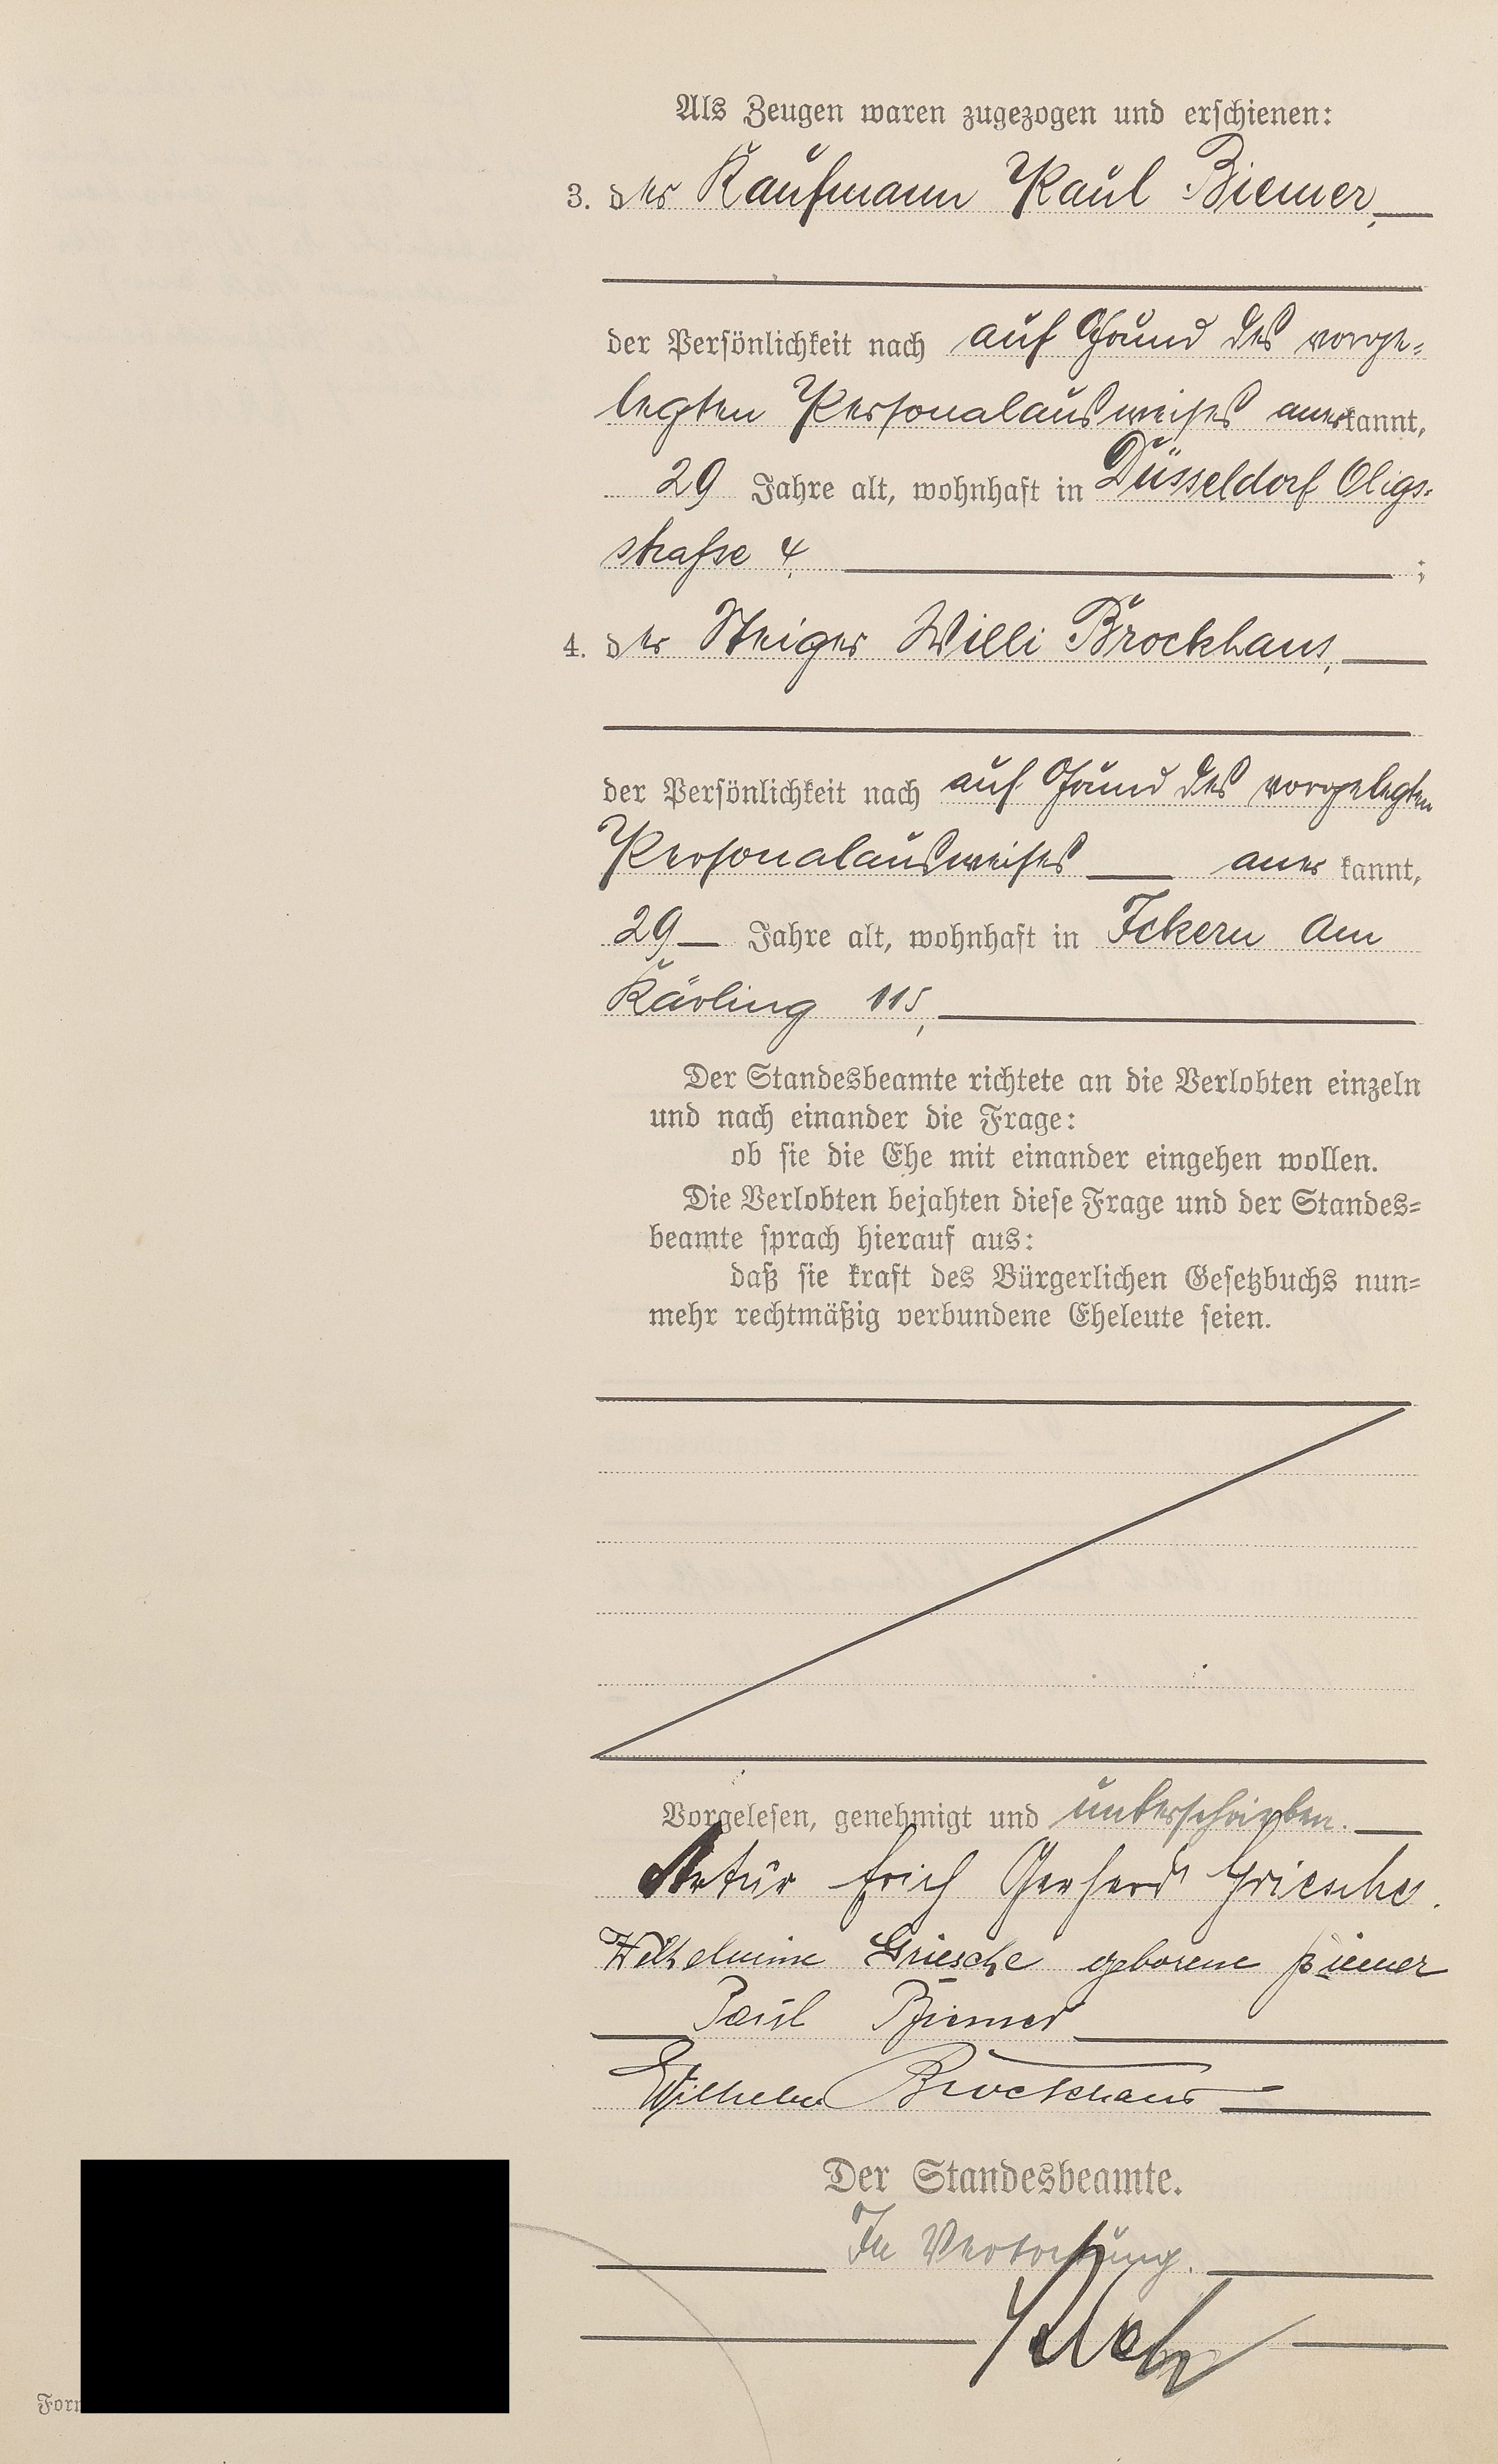 Als Zeugen waren zugezogen und erschienen:
3. der Kaufmann Paul Biemer,
der Persönlichkeit nach auf Grund des vorge-
legten Personalausweises anerkannt,
29 Jahre alt, wohnhaft in Düsseldorf Oligs-
strasse 4, ;
4. der Steiger Willi Brockhaus,
der Persönlichkeit nach auf Grund des vorgelegten
Personalausweises anerkannt,
29 Jahre alt, wohnhaft in Ickern Am
Kärling 115,
Der Standesbeamte richtete an die Verlobten einzeln
und nach einander die Frage:
ob sie die Ehe mit einander eingehen wollen.
Die Verlobten bejahten diese Frage und der Standes-
beamte sprach hierauf aus:
daß sie kraft des Bürgerlichen Gesetzbuchs nun-
mehr rechtmäßig verbundene Eheleute seien.
Vorgelesen, genehmigt und unterschrieben.
Artur Erich Gerhard Griesche.
Wilhelmine Griesche geborene Biemer
Paul Biemer
Wilhelm Brockhaus
Der Standesbeamte.
In Vertretung.